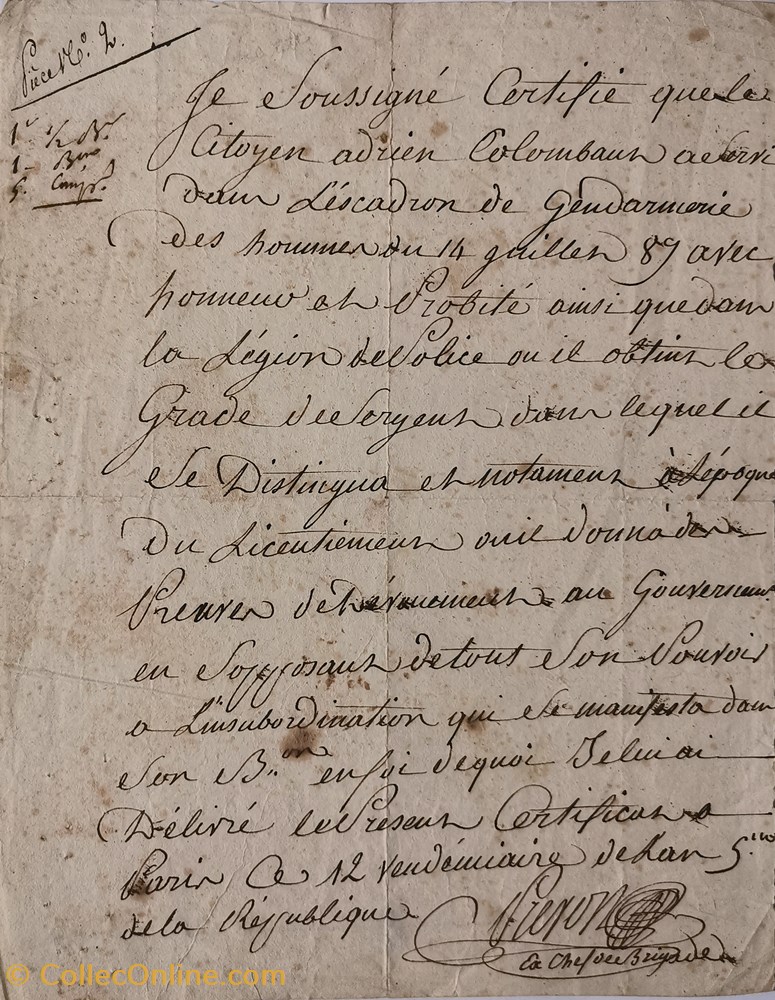 Pièce No. 2.
1re 1/2 Bde
1 Bon
5. Comp.e
Je Soussigné Certifie que le
Citoyen adrien Colombaut a Servi
dans L'éscadron de Gendarmerie
des hommes du 14 juillet 89 avec
honneur et Probité ainsi que dans
la Légion de Police ou il obtint le
Grade de Sergent dans lequel il
Se Distingua et notament à L'époque
Du Licentiément ou il donna des
Preuves de Dévouement au Gouvernem.t
en S'opposant de tout Son Pouvoir
a L'insubordination qui Se manifesta dans
Son B.on en foi de quoi Je lui ai
Délivré le Présent Certificat a
Paris Ce 12 Vendémiaire de L'an 5.me
de la République
Ex Chef de Brigade
© CollecOnline.com